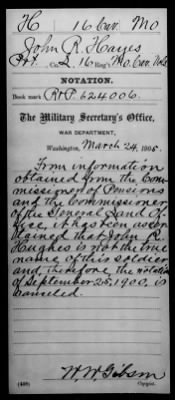 H 16 Cav. Mo
John R. Hayes
Pvt., Co. L, 16 Reg't Mo. Cav. Vols
NOTATION.
Book mark R&P 624006.
The Military Secretary's Office,
WAR DEPARTMENT,
Washington, March 24, 1905.
From information
obtained from the Com-
missioner of Pensions
and the Commissioner
of the General Land Of-
fice, it has been ascer-
tained that John R.
Hughes is not the true
name of this soldier
and, therefore, the notation
of September 25, 1900, is
canceled.
W. W. Gibson
(440) Copyist.